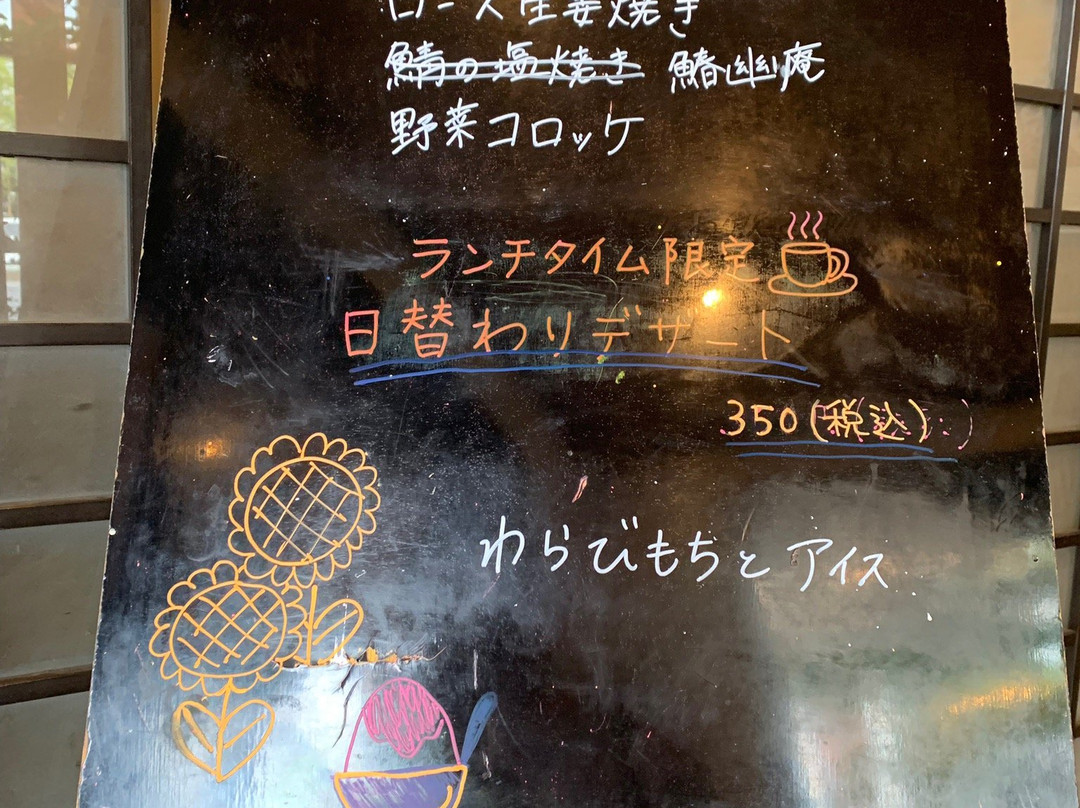 ロース生姜焼き
鯖の塩焼き 鰆幽庵
野菜コロッケ
ランチタイム限定
日替わりデザート
350(税込)
わらびもちとアイス